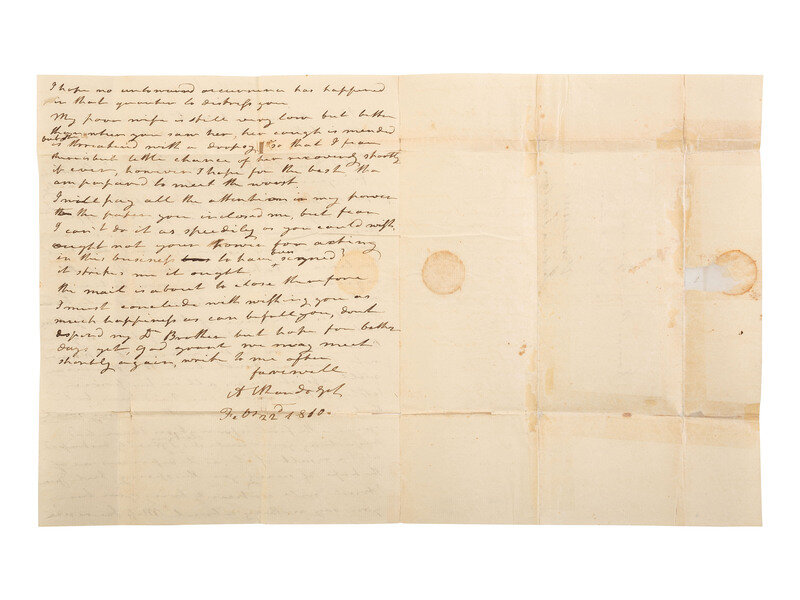 I hope no untoward occurrence has happened
in that quarter to distress you
My poor wife is still very low but better
than when you saw her, her cough is mended
but she
is threatened with a dropsy so that I fear
there is but little chance of her recovering shortly
if ever, however I hope for the best, tho
am prepared to meet the worst.
I will pay all the attention in my power
to the paper you inclosed me, but fear
I can't do it as speedily as you could wish,
ought not your power for acting
in this business to have been signed?
it strikes me it ought.
the mail is about to close therefore
I must conclude with wishing you as
much happiness as can befall you, dont
despond my Dr Brother but hope for better
days yet, God grant we may meet
shortly again, write to me often
farewell
Randolph
Feby 22d 1810.